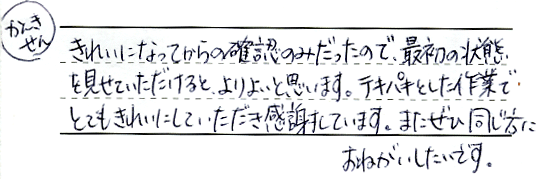 かんき
せん
きれいになってからの確認のみだったので、最初の状態
を見せていただけると、よりよいと思います。テキパキとした作業で
とてもきれいにしていただき感謝しています。またぜひ同じ方に
おねがいしたいです。